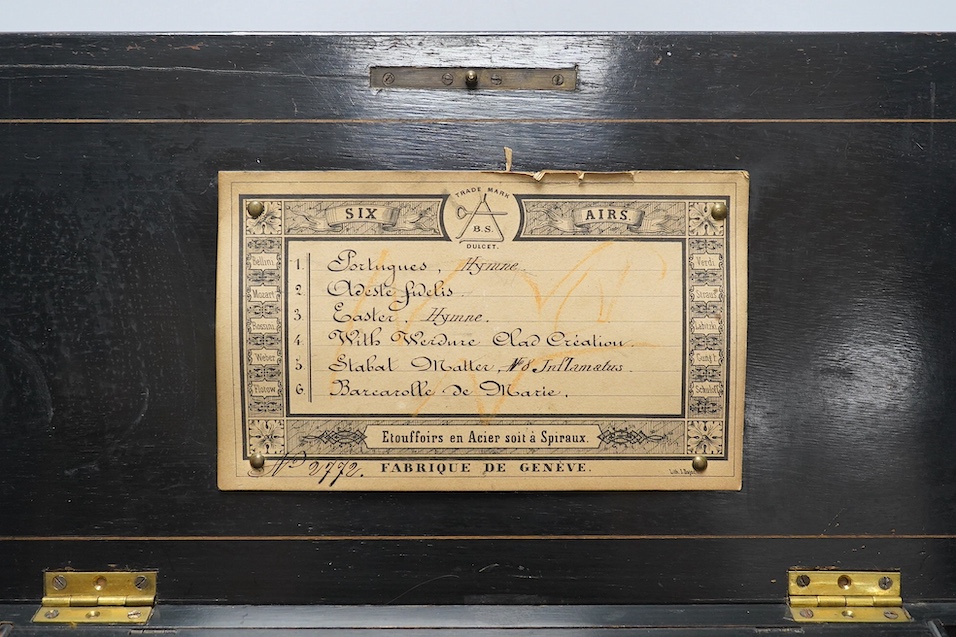 TRADE MARK
SIX
AIRS.
B.S.
DULCET.
Bellini
Mozart
Rossini
Weber
Flotow
1. Portugues, Hymne.
2. Adeste fidelis.
3. Easter. Hymne.
4. With Werdure Clad Création.
5. Stabat Matter, No 8 Inflamatus.
6. Barcarolle de Marie.
Verdi
Strauß
Labitzki
Schulof
Etouffoirs en Acier soit à Spiraux.
No 2772.
FABRIQUE DE GENÈVE.